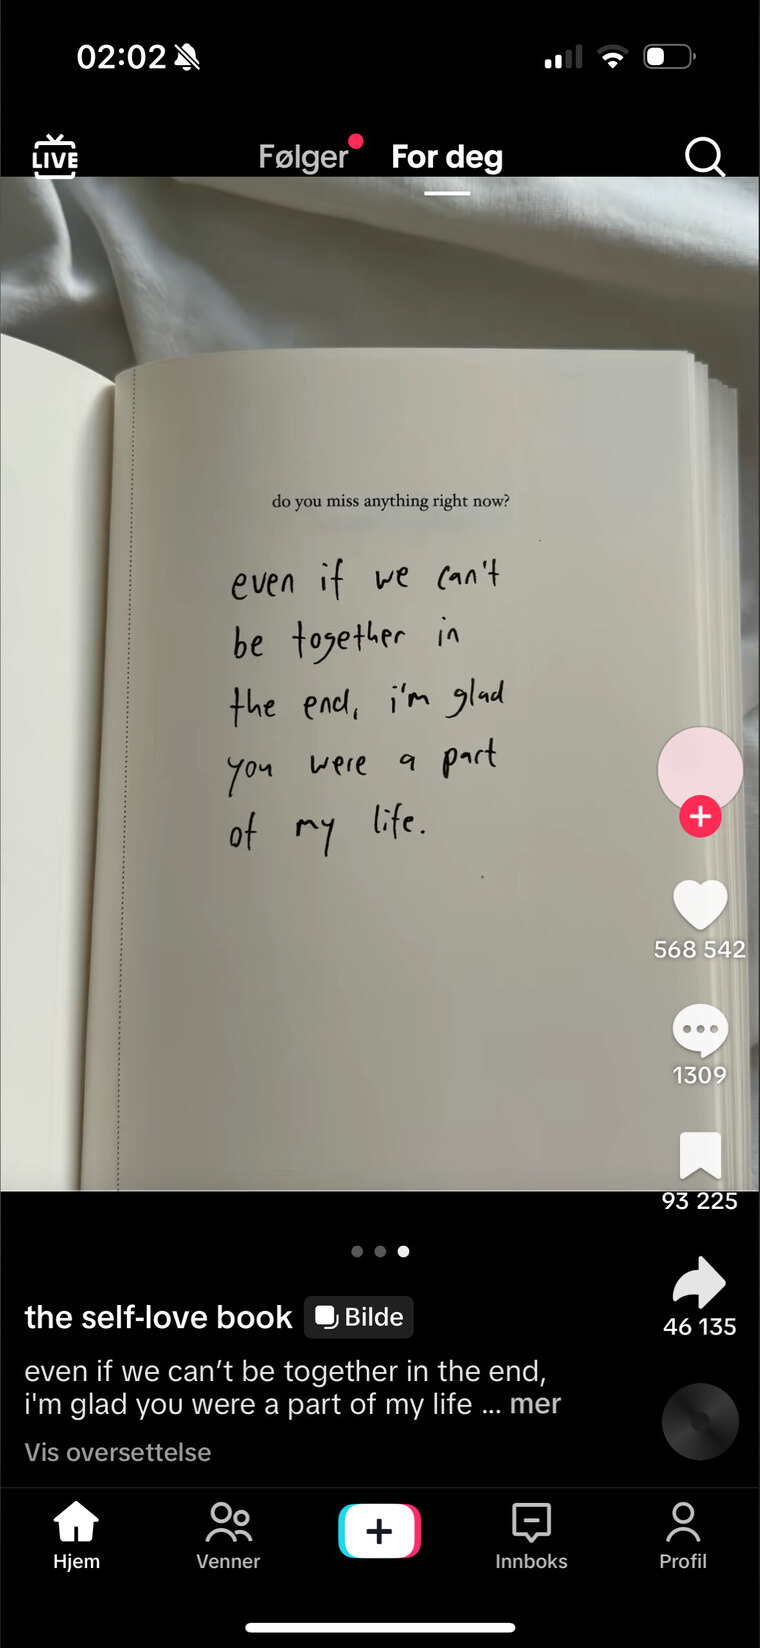 02:02
LIVE
Følger
For deg
do you miss anything right now?
even if we can't
be together in
the end, i'm glad
you were a part
of my life.
568 542
1309
93 225
46 135
the self-love book
Bilde
even if we can't be together in the end,
i'm glad you were a part of my life ... mer
Vis oversettelse
Hjem
Venner
Innboks
Profil